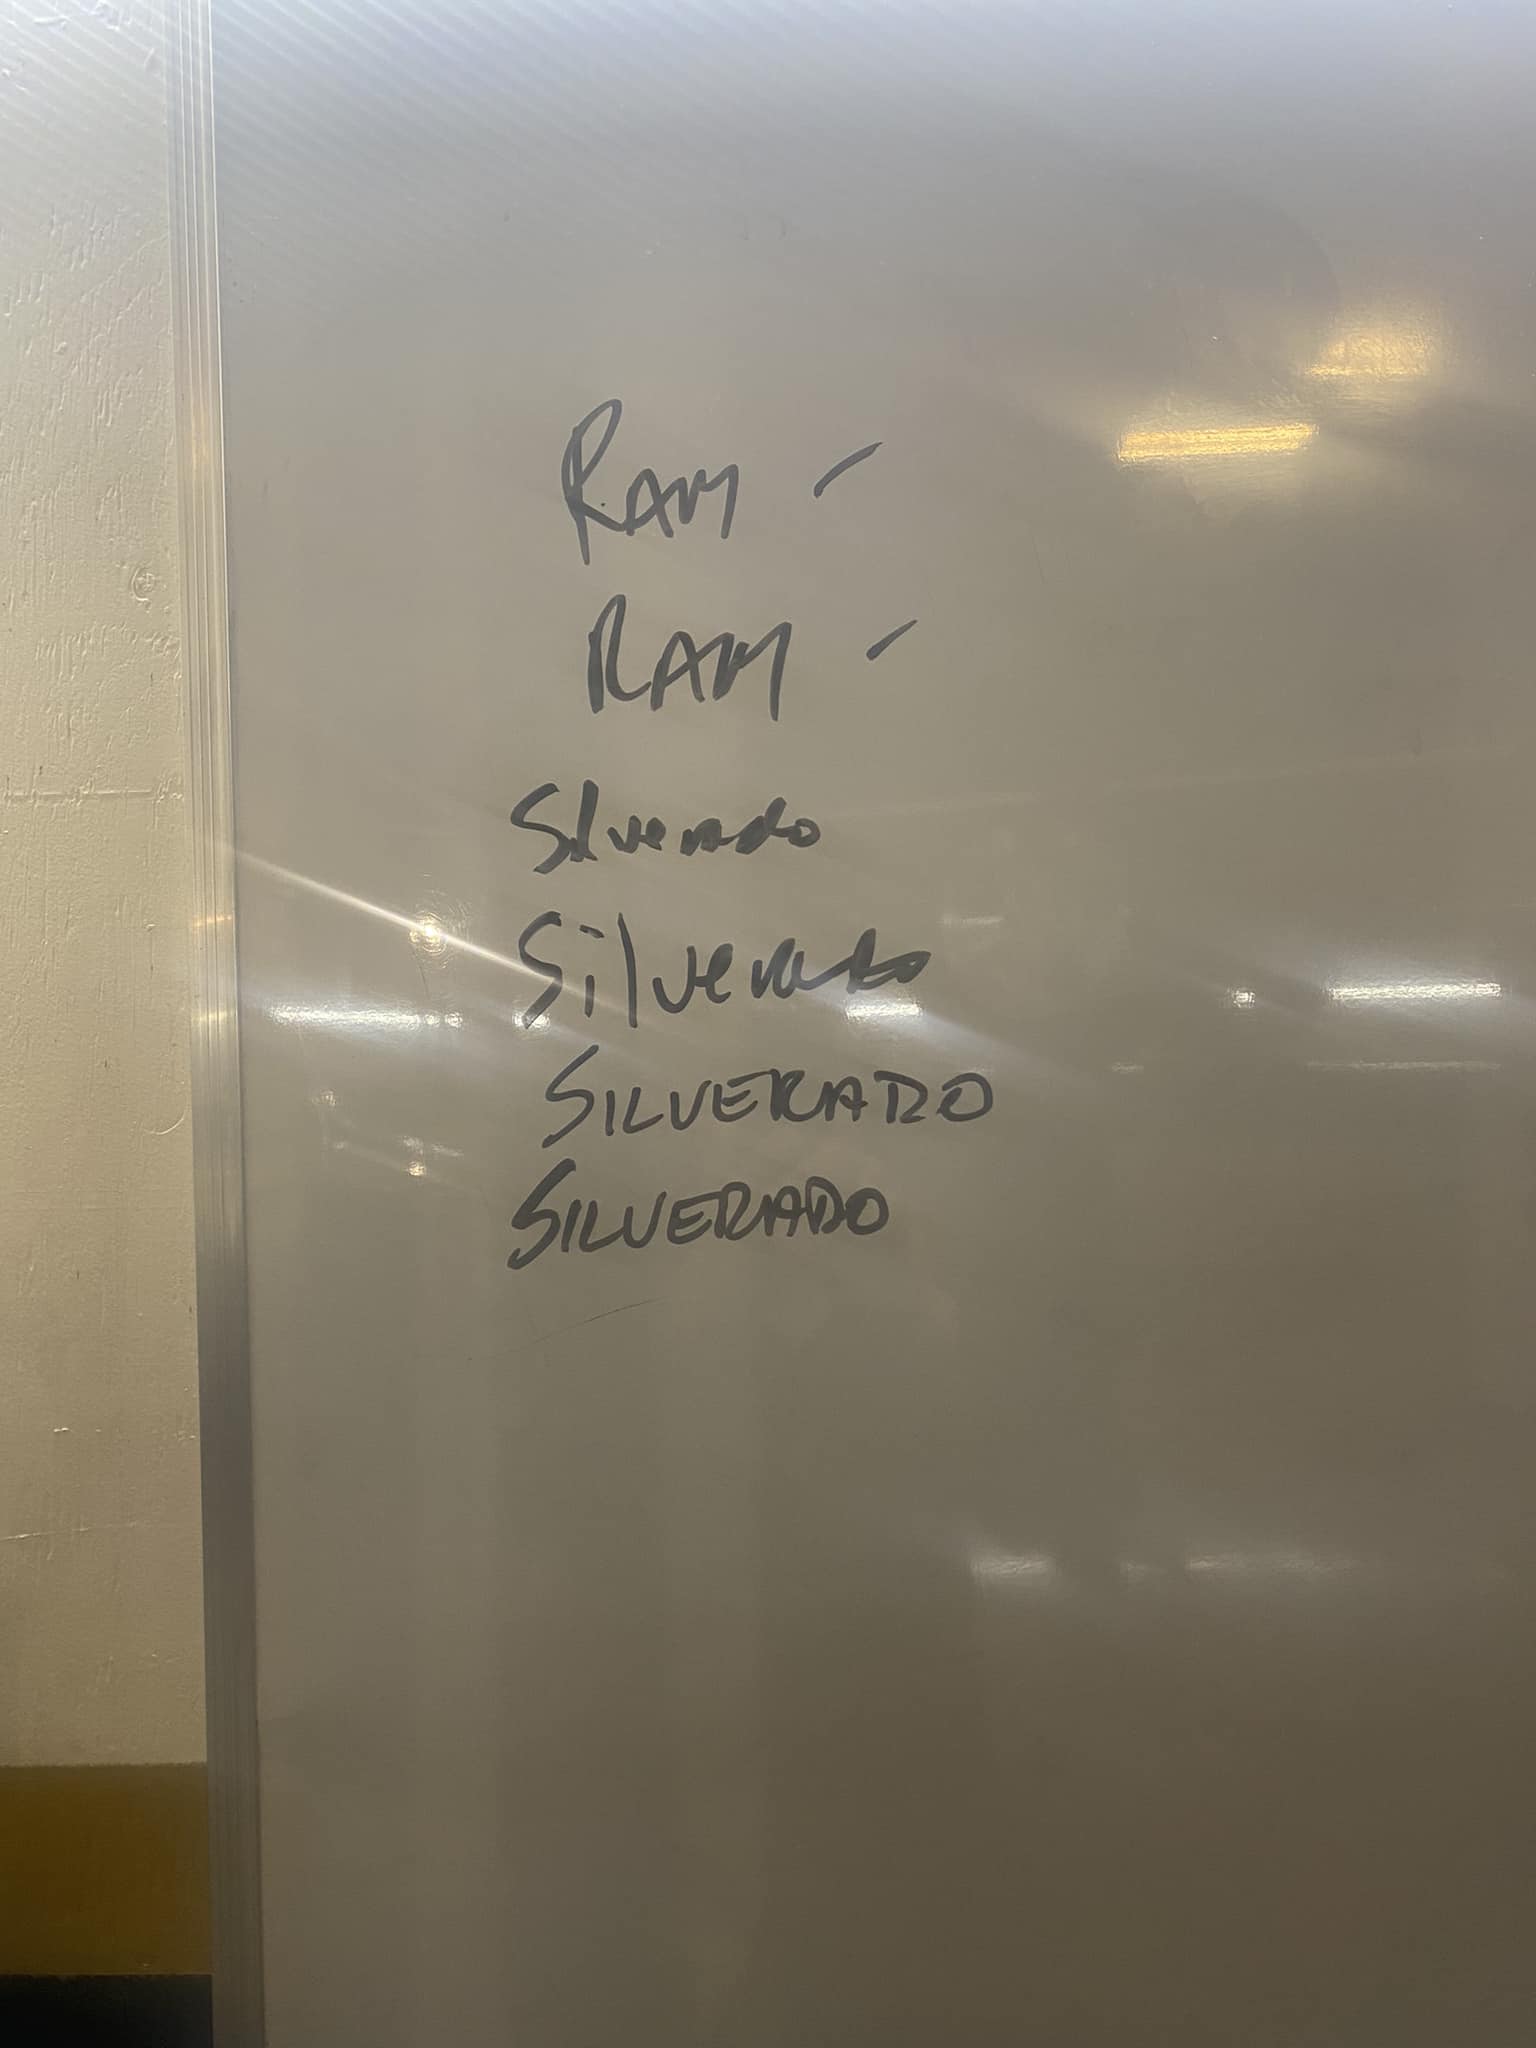 RAM -
RAM -
Silverado
Silverado
SILVERADO
SILVERADO